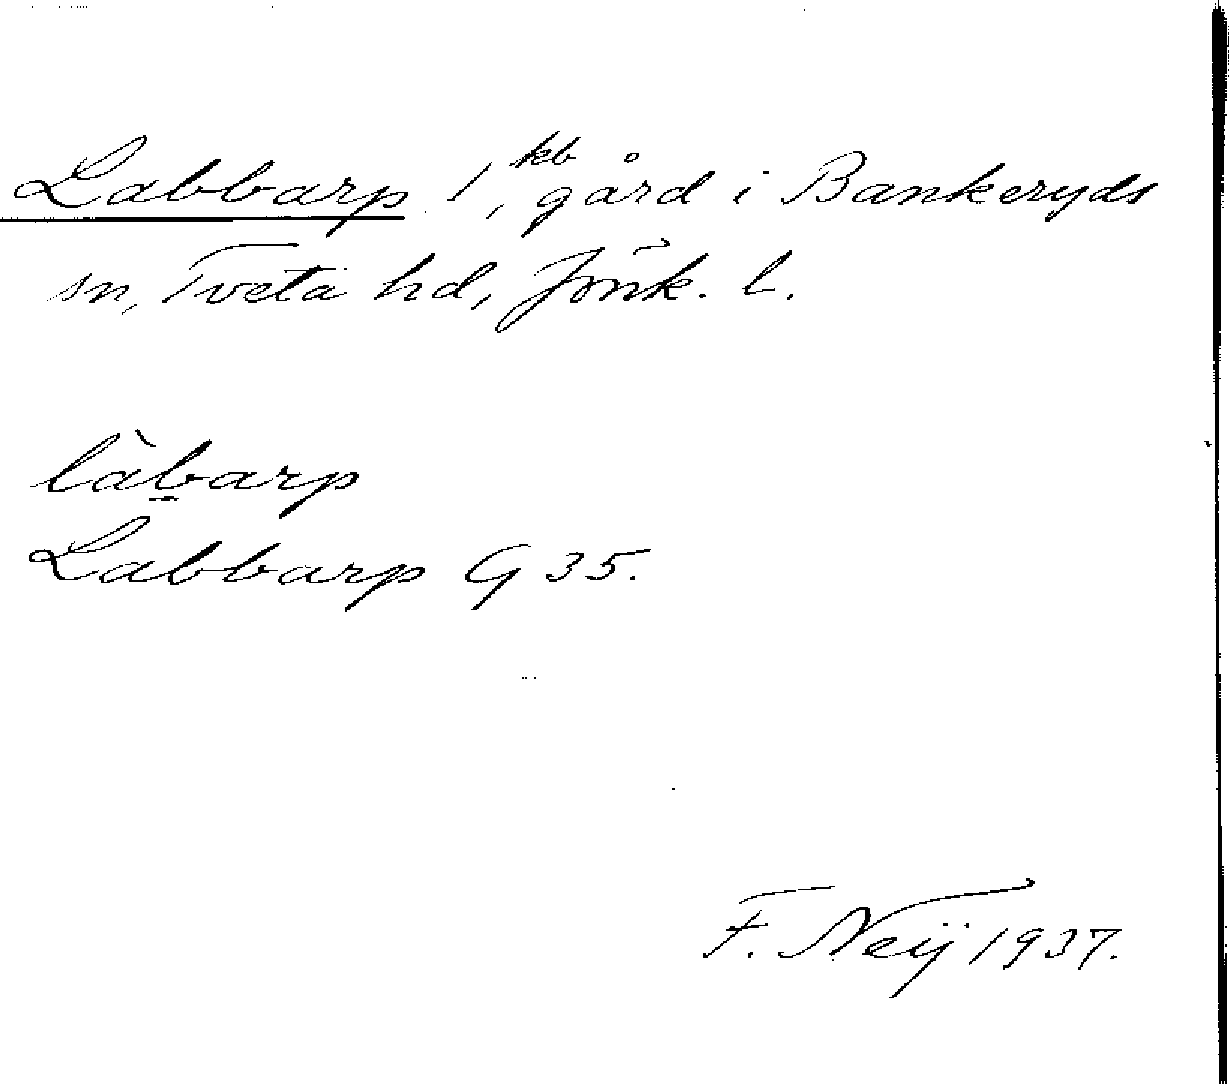 Labbarp 1 kb, gård i Bankeryds
sn, Tveta hd, Jönk. l.
làb̠arp
Labbarp G 35.
F. Neij 1937.